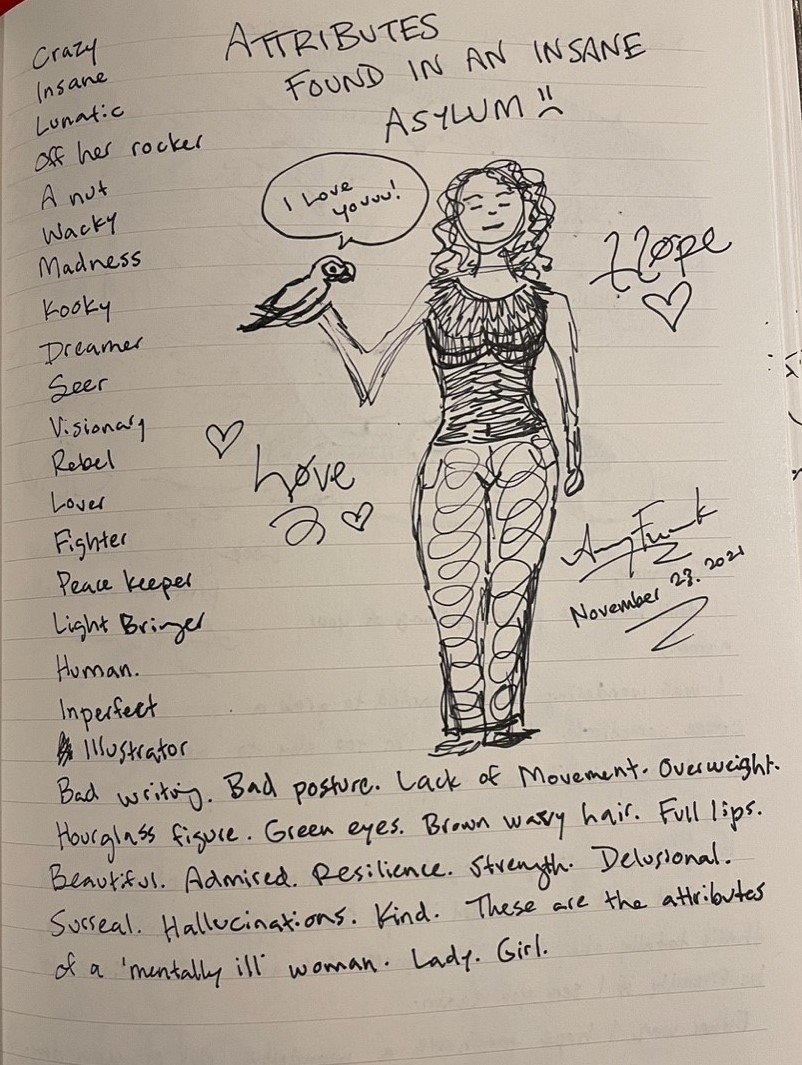 ATTRIBUTES
FOUND IN AN INSANE
ASYLUM
Crazy
Insane
Lunatic
Off her rocker
A nut
Wacky
Madness
Kooky
Dreamer
Seer
Visionary
Rebel
Lover
Fighter
Peace keeper
Light Bringer
Human.
Inperfect
Illustrator
I Love
youuu!
Hope
Love
Amy Funk
November 23. 2021
Bad writing. Bad posture. Lack of Movement. Overweight.
Hourglass figure. Green eyes. Brown wavy hair. Full lips.
Beautiful. Admired. Resilience. Strength. Delusional.
Surreal. Hallucinations. Kind. These are the attributes
of a 'mentally ill' woman. Lady. Girl.